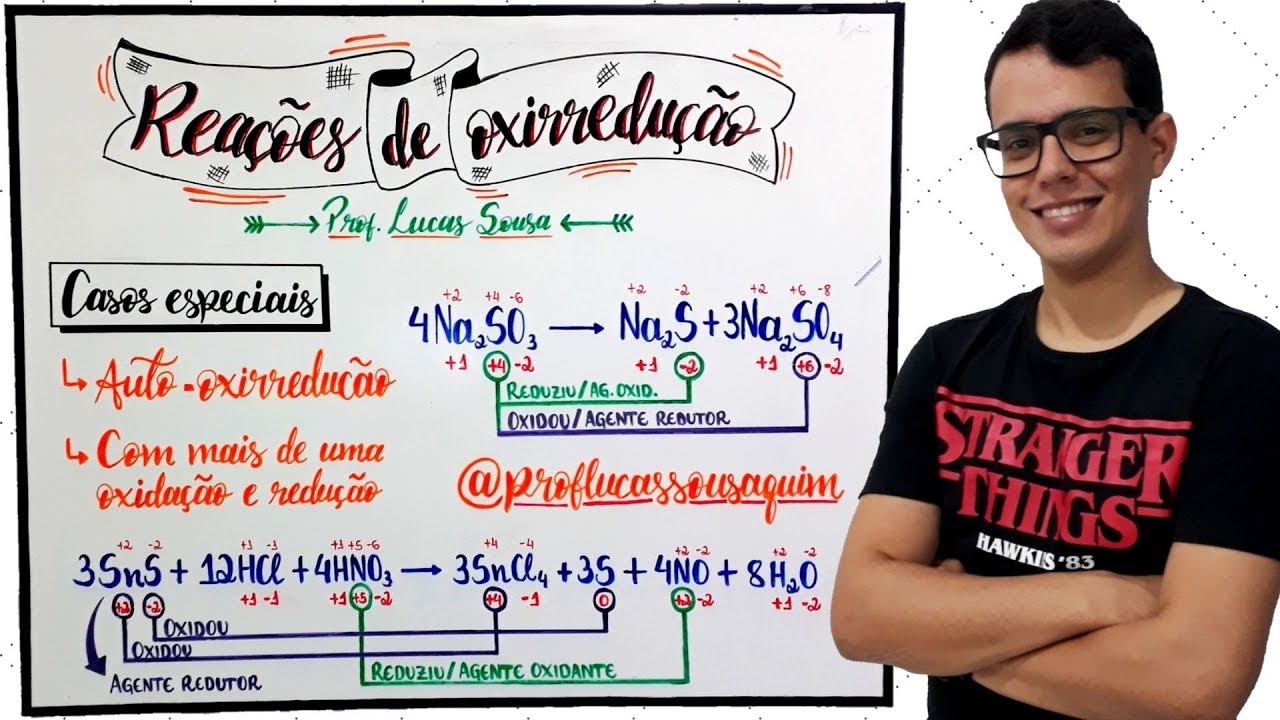 Reações de oxirredução
Prof. Lucas Sousa
Casos especiais
Auto-oxirredução
Com mais de uma
oxidação e redução
+2 +4 -6 +2 -2 +2 +6 -8
4Na₂SO₃ → Na₂S + 3Na₂SO₄
+1 +4 -2 +1 -2 +1 +6 -2
REDUZIU/AG. OXID.
OXIDOU/AGENTE REDUTOR
@proflucassousaquim
+2 -2 +1 -1 +1 +5 -6 +4 -4 +2 -2 +2 -2
3SnS + 12HCl + 4HNO₃ → 3SnCl₄ + 3S + 4NO + 8H₂O
+2 -2 +1 -1 +1 +5 -2 +4 -1 0 +2 -2 +1 -2
OXIDOU
OXIDOU
REDUZIU/AGENTE OXIDANTE
AGENTE REDUTOR
STRANGER
THINGS
HAWKINS '83